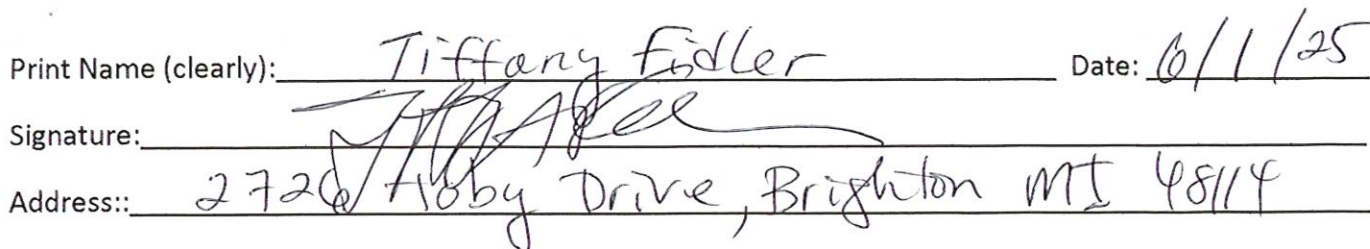 Print Name (clearly): Tiffany Fidler Date: 6/1/25
Signature:
Address:: 2726 Hoby Drive, Brighton MI 48114